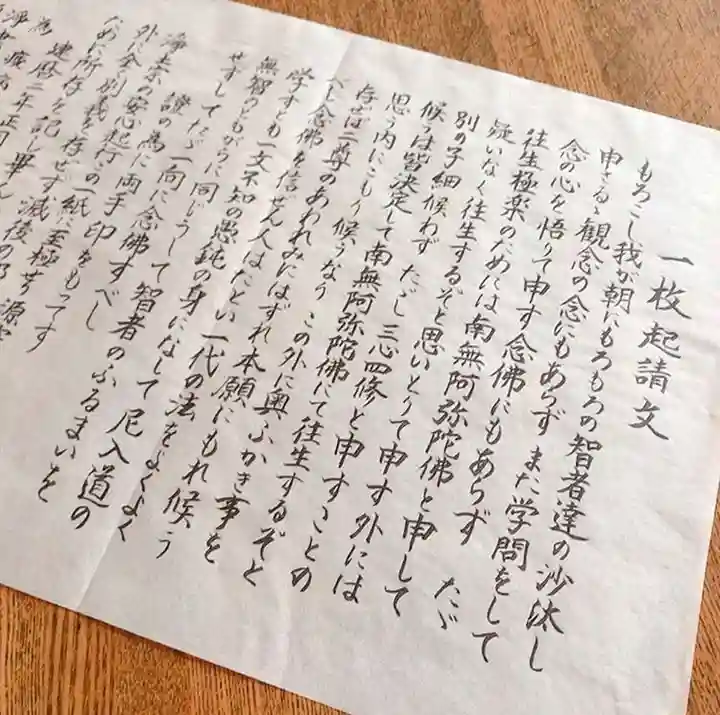 一枚起請文
もろこし我が朝にもろもろの智者達の沙汰し
申さるゝ観念の念にもあらず また学問をして
念の心を悟りて申す念佛にもあらず たゞ
往生極楽のためには南無阿弥陀佛と申して
疑いなく往生するぞと思いとりて申す外には
別の子細候わず たゞし三心四修と申すことの
候うは皆決定して南無阿弥陀佛にて往生するぞと
思う内にこもり候うなり この外に奥ふかき事を
存ぜば二尊のあわれみにはずれ本願にもれ候う
べし念佛を信ぜん人はたとい一代の法をよくよく
学すとも一文不知の愚鈍の身になして尼入道の
無智のともがらに同じうして智者のふるまいを
せずしてたゞ一向に念佛すべし
證の為に両手印をもってす
浄土宗の安心起行この一紙に至極せり 源空
外に全く別義を存ぜず 滅後の
ために所存を記し畢んぬ
建暦二年正月